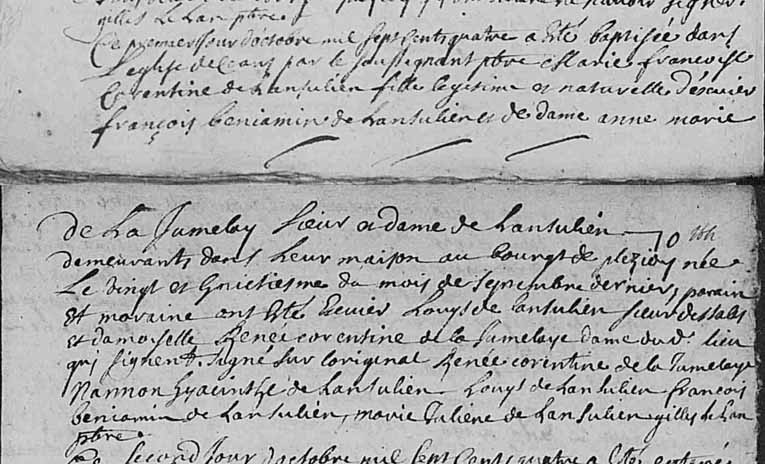 gilles de Lan pbre.
Ce premier Jour d'octobre mil sept cents quatre a esté baptisée dans
L'eglise de ceans par le soussignant pbre Marie francoise
Corentine de Lansulien fille legitime et naturelle d'escuier
françois beniamin de Lansulien et de dame anne marie
de La Jumelay sieur et dame de Lansulien
demeurants dans Leur maison au bourg de née
Le Vingt et huictiesme du mois de Septembre dernier, parain
Et maraine ont Esté Escuier Louys de Lansulien sieur
et damoiselle Renée corentine de la Jumelaye dame du d. lieu
qui signent. Signé sur l'original Renée corentine de la Jumelaye
Nannon hyacinthe de Lansulien Louys de Lansulien francois
beniamin de Lansulien, marie Juliene de Lansulien gilles de Lan
pbre.
second Jour d'octobre mil sept cents quatre a esté